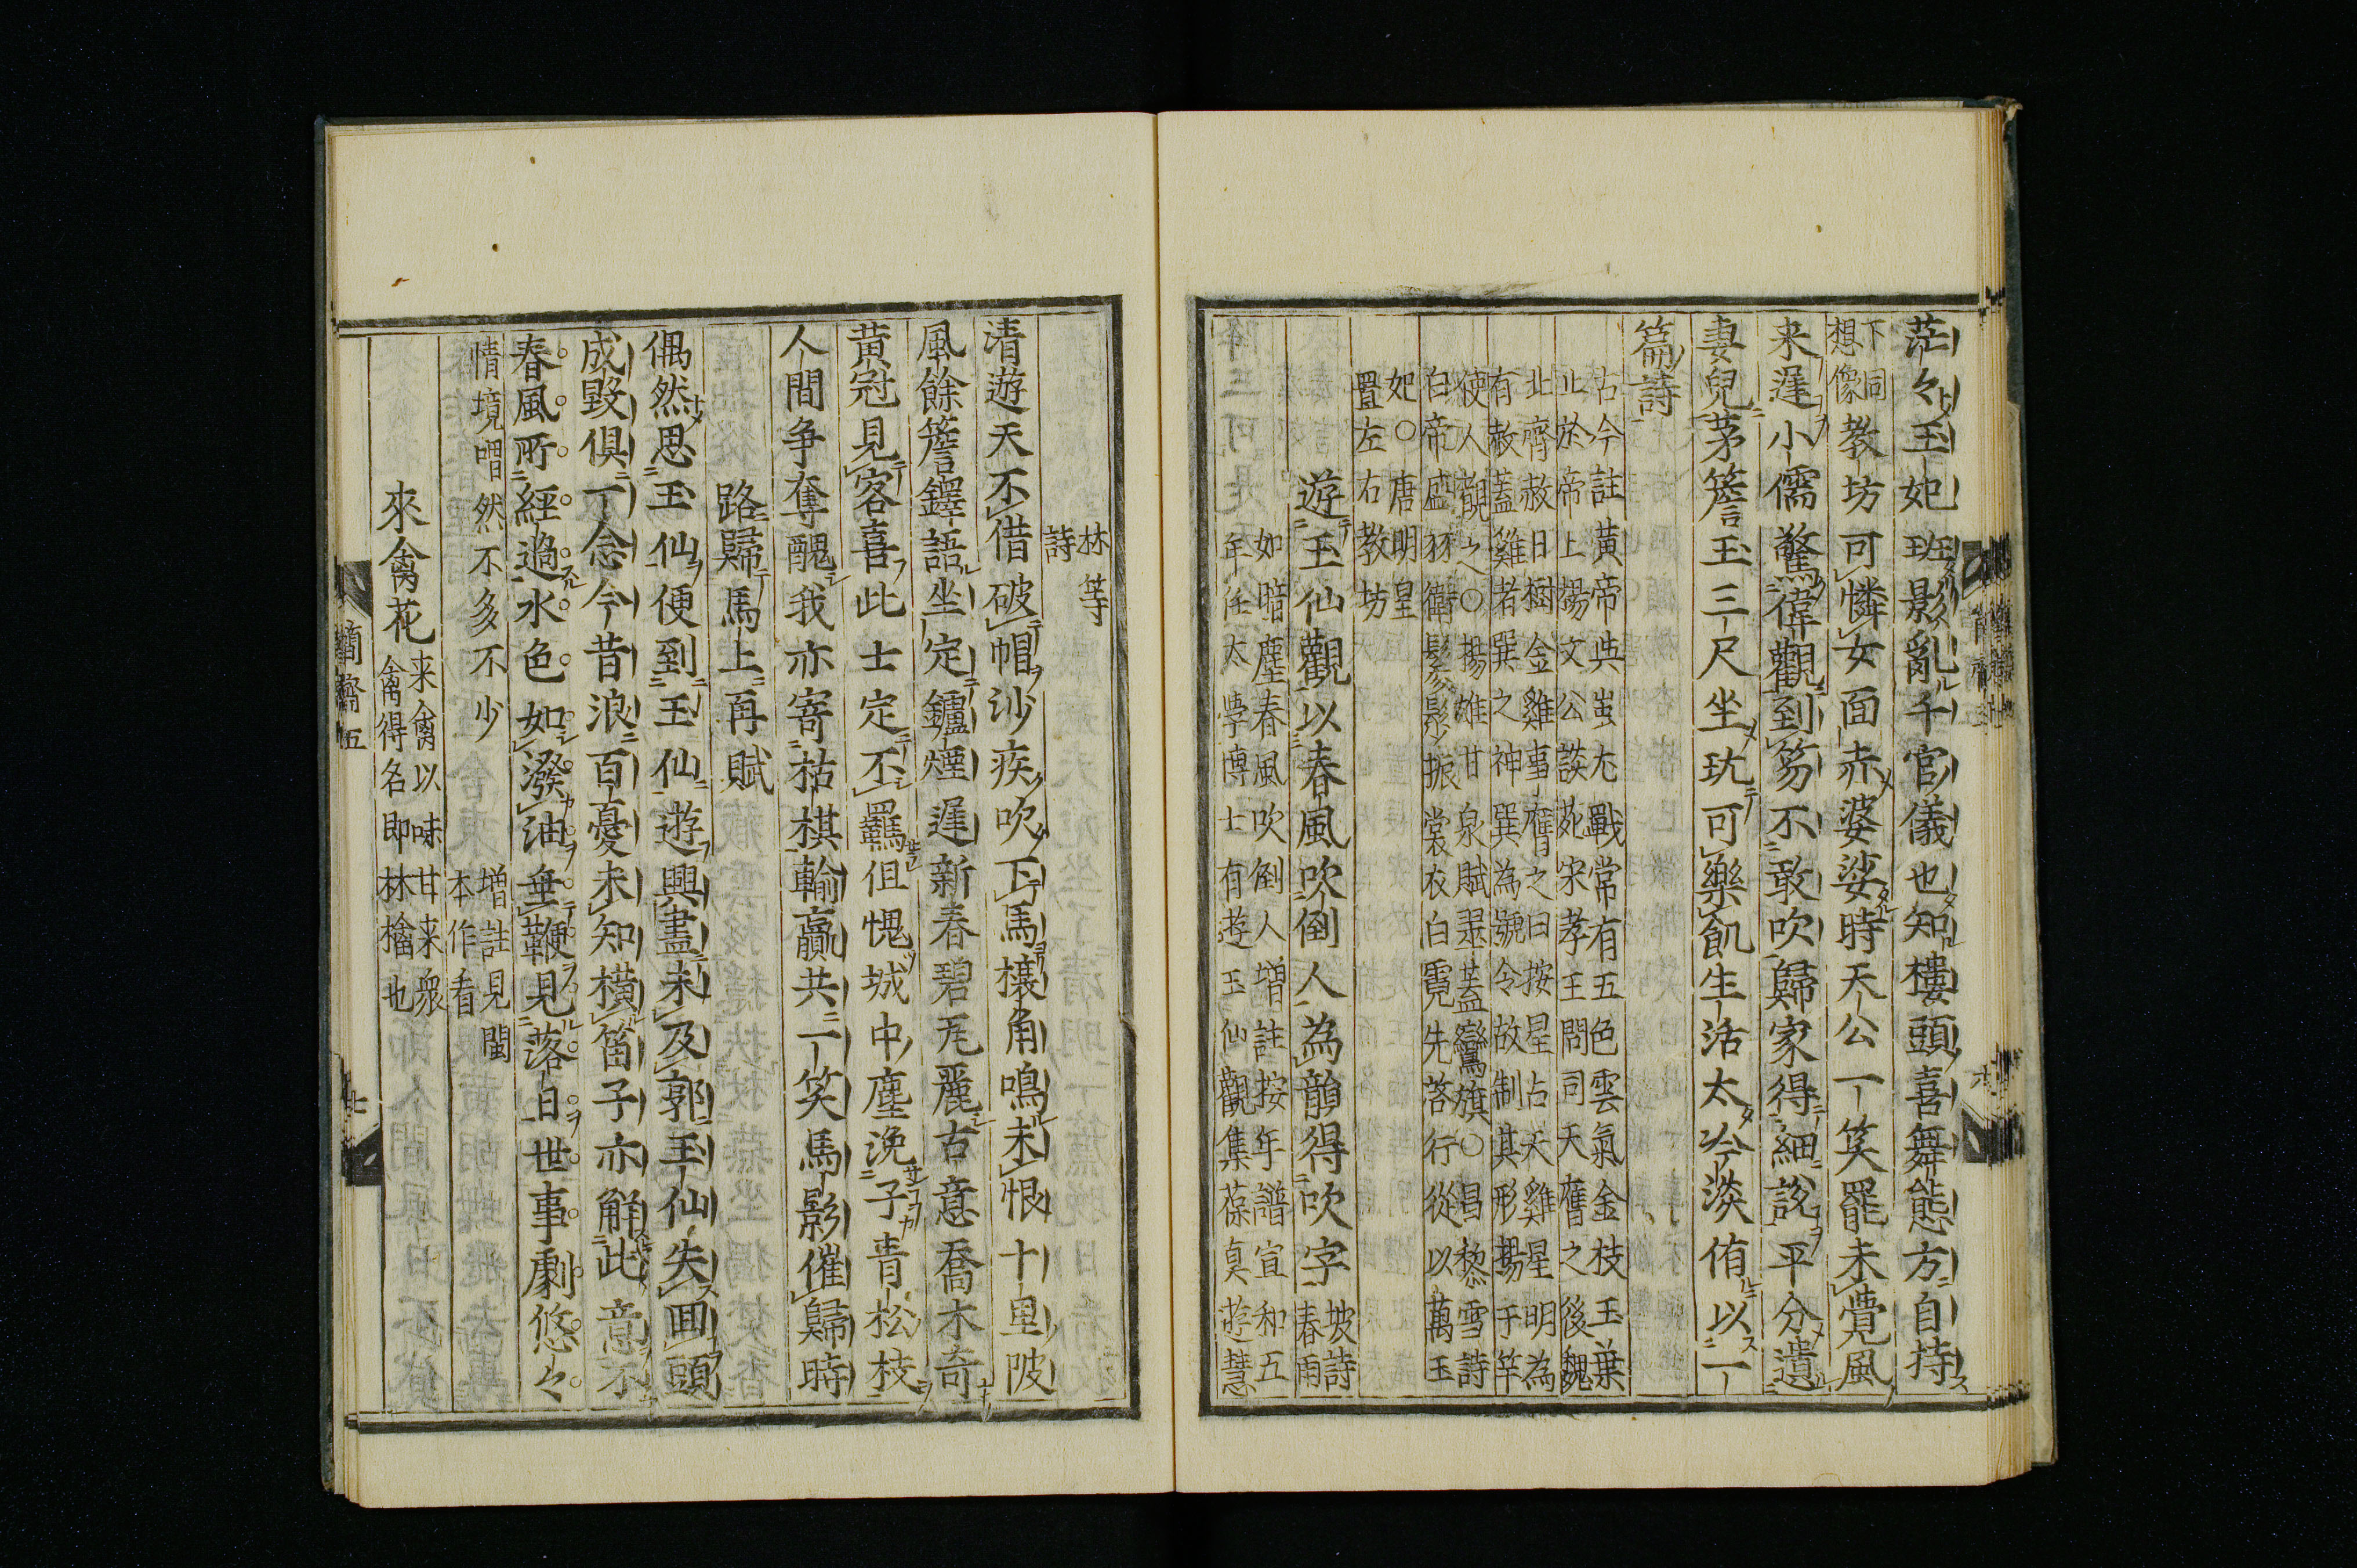 茫々玉妃班影亂千官儀也知樓頭喜舞態方自持
下同
想像教坊可憐女面赤婆娑時天公一笑罷未覺風
来遲小儒驚偉觀到笏不敢吹歸家得細說平分遺
妻兒茅簷玉三尺坐玩可樂飢生活太冷淡侑以一
篇詩
古今註黃帝與蚩尤戰常有五色雲氣金枝玉葉
止於帝上揚文公談苑宋孝王問司天膺之後魏
北齊赦日樹金雞事膺之曰按星占天雞星明為
有赦蓋雞者巽之神巽為號令故制其形揚于竿
使人觀之〇揚雄甘泉賦翠蓋鸞旗〇昌黎雪詩
白帝盛羽衛鬖髿振裳衣白霓先啓行從以萬玉
妃〇唐明皇
置左右教坊
遊玉仙觀以春風吹倒人為韻得吹字
坡詩
春雨
如暗塵春風吹倒人增註按年譜宣和五
年任太學博士有遊玉仙觀集葆真遊慧
林等
詩
清遊天不借破帽沙疾吹下馬欀角鳴未恨十里陂
風餘簷鐸語坐定鑪煙遲新春碧瓦麗古意喬木奇
黃冠見客喜此士定不羈但愧城中塵浼子青松枝
人間争奪醜我亦寄枯棋輸贏共一笑馬影催歸時
路歸馬上再賦
偶然思玉仙便到玉仙遊興盡未及郭玉仙失回頭
成毀俱一念今昔浪百憂未知橫笛子亦解此意不
春風所經過水色如潑油垂鞭見落日世事劇悠々
情境喟然不多不少
增註見閩
本作看
來禽花
来禽以味甘来衆
禽得名即林檎也
簡齋五
七
六